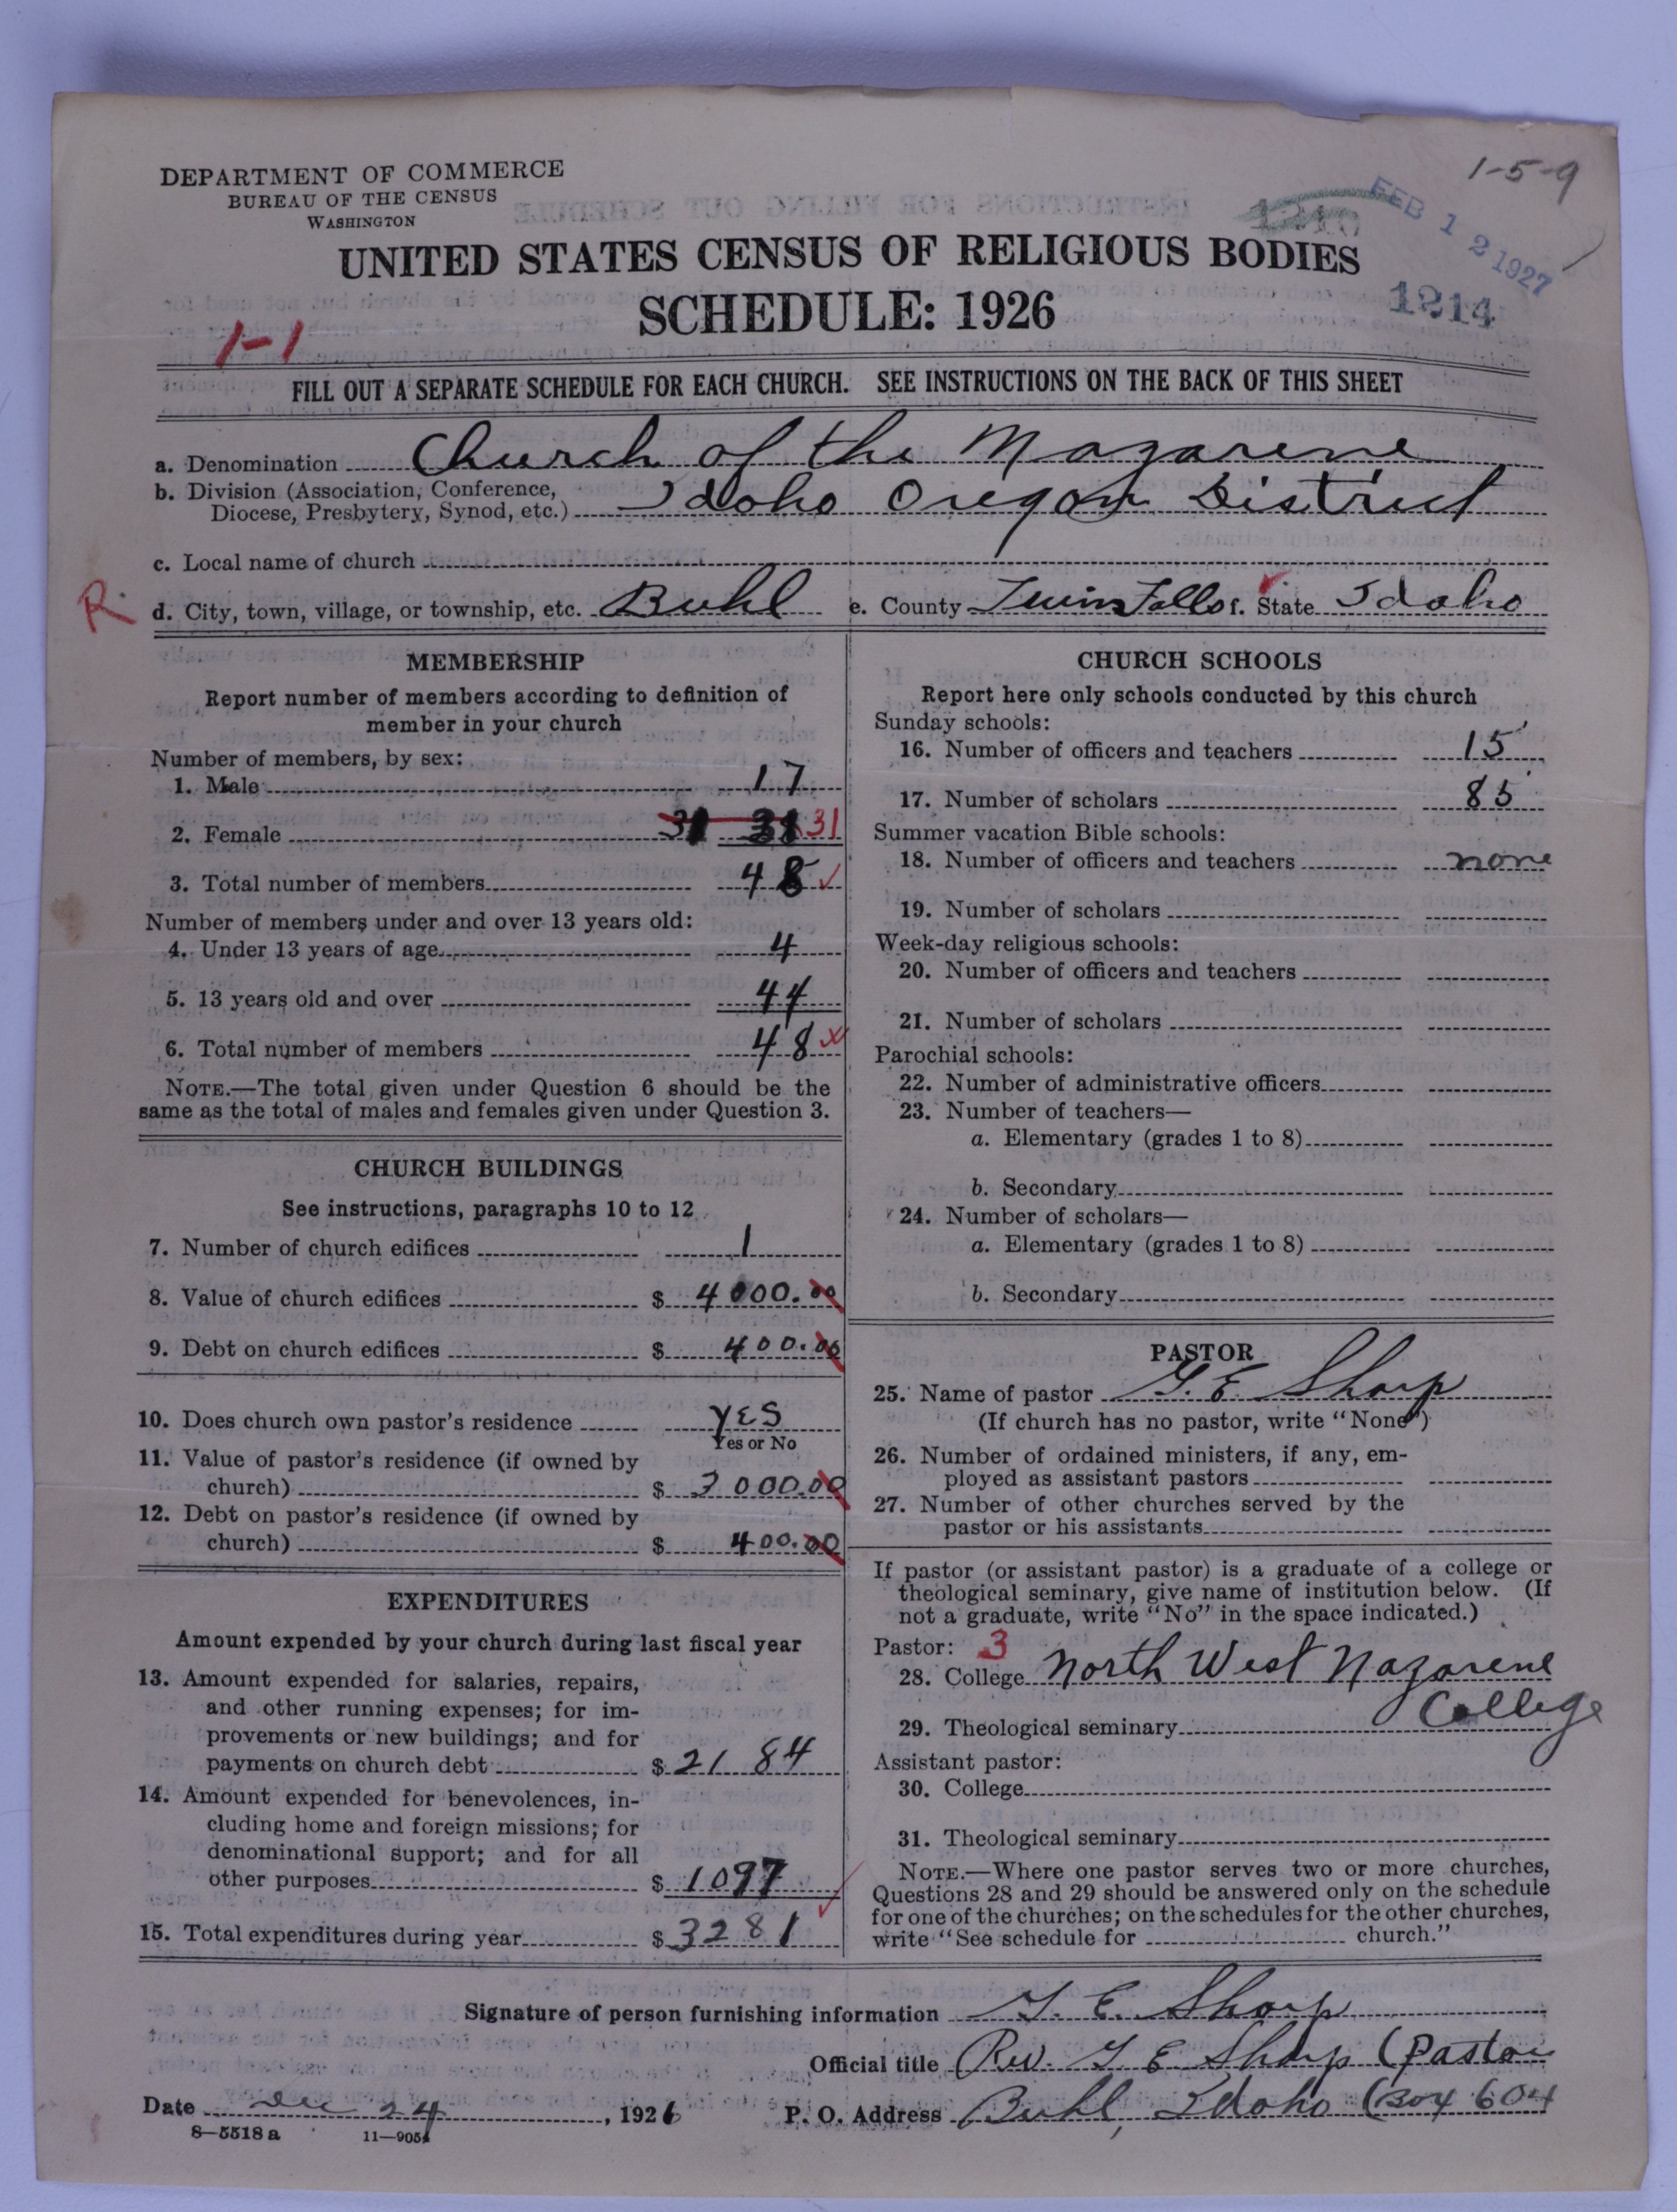 1-5-9
DEPARTMENT OF COMMERCE
BUREAU OF THE CENSUS
WASHINGTON
FEB 12 1927
UNITED STATES CENSUS OF RELIGIOUS BODIES
SCHEDULE: 1926
1214
1-1
FILL OUT A SEPARATE SCHEDULE FOR EACH CHURCH. SEE INSTRUCTIONS ON THE BACK OF THIS SHEET
a. Denomination Church of the Nazarene
b. Division (Association, Conference,
Diocese, Presbytery, Synod, etc.) Idaho Oregon District
c. Local name of church
R. d. City, town, village, or township, etc. Buhl e. County Twin Falls f. State Idaho
MEMBERSHIP
Report number of members according to definition of
member in your church
Number of members, by sex:
1. Male 17
2. Female 31 31 31
3. Total number of members 48
Number of members under and over 13 years old:
4. Under 13 years of age 4
5. 13 years old and over 44
6. Total number of members 48
NOTE.—The total given under Question 6 should be the
same as the total of males and females given under Question 3.
CHURCH BUILDINGS
See instructions, paragraphs 10 to 12
7. Number of church edifices 1
8. Value of church edifices $ 4000.00
9. Debt on church edifices $ 400.00
10. Does church own pastor's residence YES
Yes or No
11. Value of pastor's residence (if owned by
church) $ 3000.00
12. Debt on pastor's residence (if owned by
church) $ 400.00
EXPENDITURES
Amount expended by your church during last fiscal year
13. Amount expended for salaries, repairs,
and other running expenses; for im-
provements or new buildings; and for
payments on church debt $ 2184
14. Amount expended for benevolences, in-
cluding home and foreign missions; for
denominational support; and for all
other purposes $ 1097
15. Total expenditures during year $ 3281
CHURCH SCHOOLS
Report here only schools conducted by this church
Sunday schools:
16. Number of officers and teachers 15
17. Number of scholars 85
Summer vacation Bible schools:
18. Number of officers and teachers none
19. Number of scholars
Week-day religious schools:
20. Number of officers and teachers
21. Number of scholars
Parochial schools:
22. Number of administrative officers
23. Number of teachers—
a. Elementary (grades 1 to 8)
b. Secondary
24. Number of scholars—
a. Elementary (grades 1 to 8)
b. Secondary
PASTOR
25. Name of pastor G. E. Sharp
(If church has no pastor, write "None")
26. Number of ordained ministers, if any, em-
ployed as assistant pastors
27. Number of other churches served by the
pastor or his assistants
If pastor (or assistant pastor) is a graduate of a college or
theological seminary, give name of institution below. (If
not a graduate, write "No" in the space indicated.)
Pastor: 3
28. College North West Nazarene
College
29. Theological seminary
Assistant pastor:
30. College
31. Theological seminary
NOTE.—Where one pastor serves two or more churches,
Questions 28 and 29 should be answered only on the schedule
for one of the churches; on the schedules for the other churches,
write "See schedule for church."
Signature of person furnishing information G. E. Sharp
Official title (Rev. G E Sharp (Pastor
Date Dec 24, 1926 P. O. Address Buhl, Idaho (Box 604
8—5518 a 11—9054